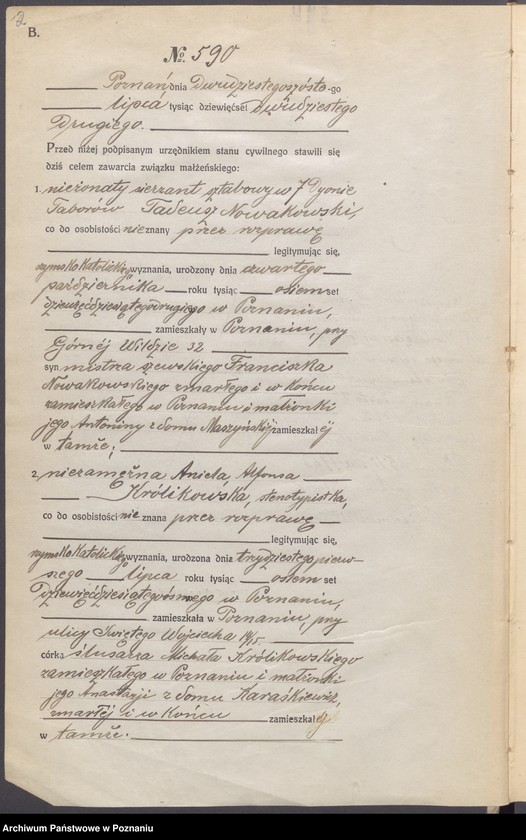 2.
B.
№ 590
Poznań, dnia Dwudziestegoszósto-go
lipca, tysiąc dziewięćset dwudziestego
Drugiego.
Przed niżej podpisanym urzędnikiem stanu cywilnego stawili się
dziś celem zawarcia związku małżeńskiego:
1. nieżonaty sierżant sztabowy w 7 Dyonie
Taborów Tadeusz Nowakowski,
co do osobistości nieznany przez rozprawę
legitymując się,
rzymsko katolickiego wyznania, urodzony dnia czwartego
października roku tysiąc osiemset
dziewięćdziesiątegodrugiego w Poznaniu,
zamieszkały w Poznaniu, przy
Górnej Wildzie 32
syn mistrza szewskiego Franciszka
Nowakowskiego zmarłego i w końcu
zamieszkałego w Poznaniu i małżonki
jego Antoniny z domu Maszyńskiej zamieszkałej
w tamże;
2. niezamężna Aniela Alfonsa
Królikowska, stenotypistka,
co do osobistości nie znana przez rozprawę
legitymując się,
rzymsko katolickiego wyznania, urodzona dnia trzydziestego pierw-
szego lipca roku tysiąc osiemset
Dziewięćdziesiątegoósmego w Poznaniu,
zamieszkała w Poznaniu, przy
ulicy Świętego Wojciecha 14/15
córka ślusarza Michała Królikowskiego
zamieszkałego w Poznaniu i małżonki
jego Anastazji z domu Karaśkiewicz,
zmarłej i w końcu zamieszkałej
w tamże.
Archiwum Państwowe w Poznaniu